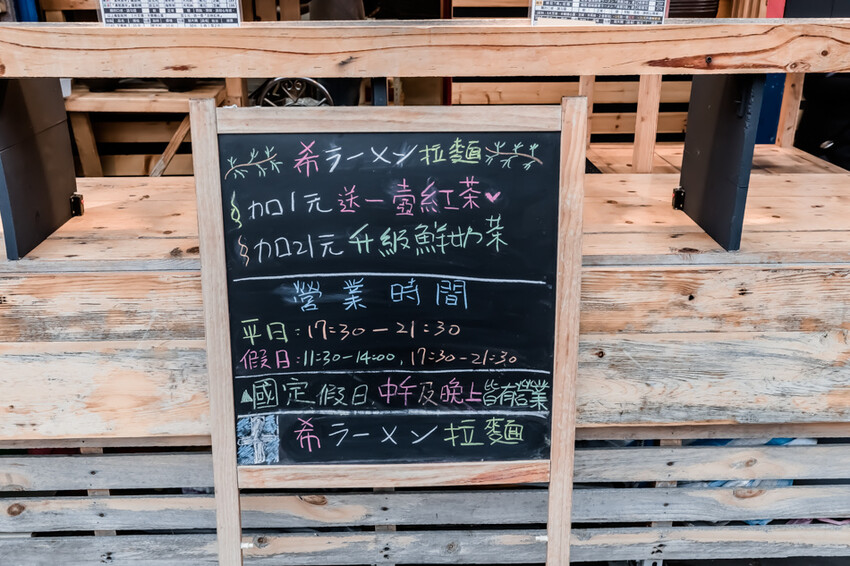 希ラーメン拉麵
加1元送一壺紅茶♥
加21元升級鮮奶茶
營業時間
平日:17:30-21:30
假日:11:30-14:00,17:30-21:30
▲國定假日,中午及晚上皆有營業
希ラーメン拉麵